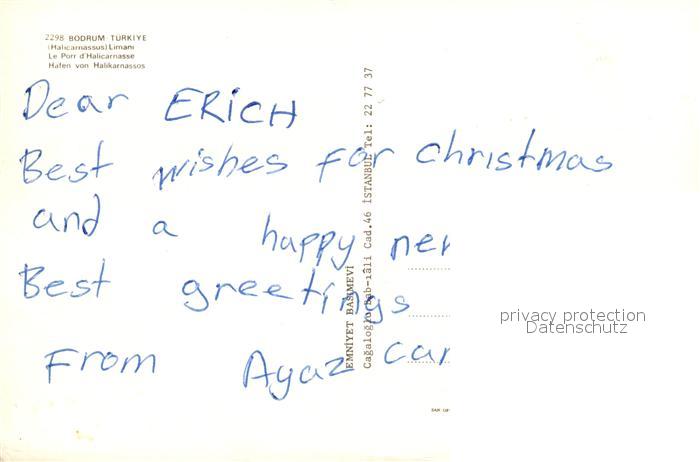 2298 BODRUM TÜRKİYE
(Halicarnassus) Limanı
Le Porr d'Halicarnasse
Hafen von Halikarnassos
Dear ERICH
Best wishes for christmas
and a happy
Best greetings
From Ayaz
EMNİYET BASIMEVİ
Cağaloğlu Bab-ıâli Cad.46 İSTANBUL Tel: 22 77 37
privacy protection
Datenschutz